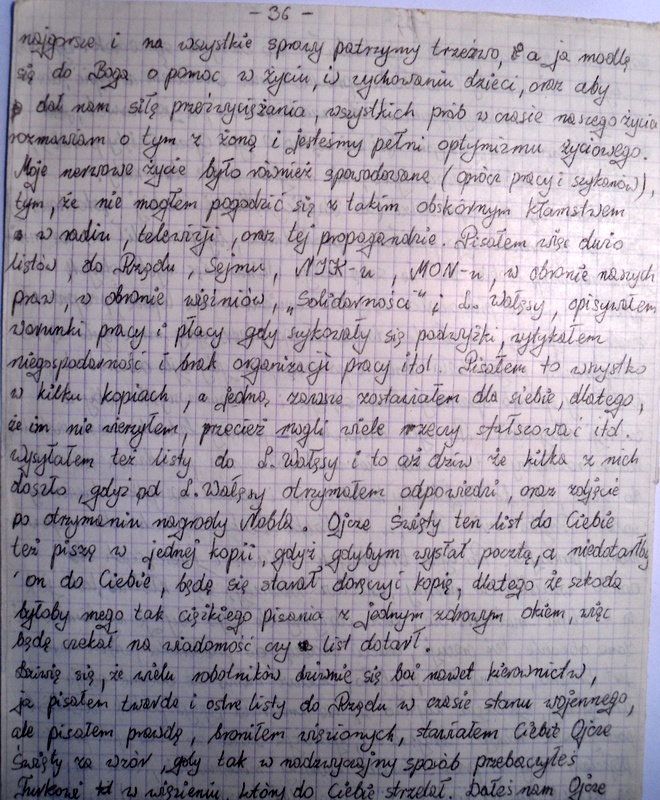 - 36 -
najgorsze i na wszystkie sprawy patrzymy trzeźwo, a ja modlę
się do Boga o pomoc w życiu, w wychowaniu dzieci, oraz aby
dał nam siłę przezwyciężania, wszystkich prób w czasie naszego życia
rozmawiam o tym z żoną i jesteśmy pełni optymizmu życiowego.
Moje nerwowe życie było również spowodowane (oprócz pracy i szykanów),
tym, że nie mogłem pogodzić się z takim obskórnym kłamstwem
w radiu, telewizji, oraz tej propagandzie. Pisałem więc dużo
listów, do Rządu, Sejmu, NIK-u, MON-u, w obronie naszych
praw, w obronie więźniów, „Solidarności" i L. Wałęsy, opisywałem
warunki pracy i płacy gdy szykowały się podwyżki, wytykałem
niegospodarność i brak organizacji pracy itd. Pisałem to wszystko
w kilku kopiach, a jedną, zawsze zostawiałem dla siebie, dlatego,
że im nie wierzyłem, przecież mogli wiele rzeczy sfałszować itd.
wysyłałem też listy do L. Wałęsy i to aż dziw że kilka z nich
doszło, gdyż od L. Wałęsy otrzymałem odpowiedzi, oraz zdjęcie
po otrzymaniu nagrody Nobla. Ojcze Święty ten list do Ciebie
też piszę w jednej kopii, gdyż gdybym wysłał pocztą, a niedotarłby
on do Ciebie, będę się starał doręczyć kopię, dlatego że szkoda
byłoby mego tak ciężkiego pisania z jednym zdrowym okiem, więc
będę czekał na wiadomość czy list dotarł.
Dziwię się, że wielu robotników dziwnie się boi nawet kierownictw,
ja pisałem twarde i ostre listy do Rządu w czasie stanu wojennego,
ale pisałem prawdę, broniłem więzionych, stawiałem Ciebie Ojcze
Święty za wzór, gdy tak w nadzwyczajny sposób przebaczyłeś
Turkowi w więzieniu, który do Ciebie strzelał. Dałeś nam Ojcze